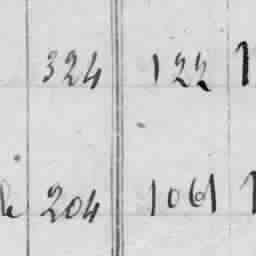 324 122 1
204 1061 1